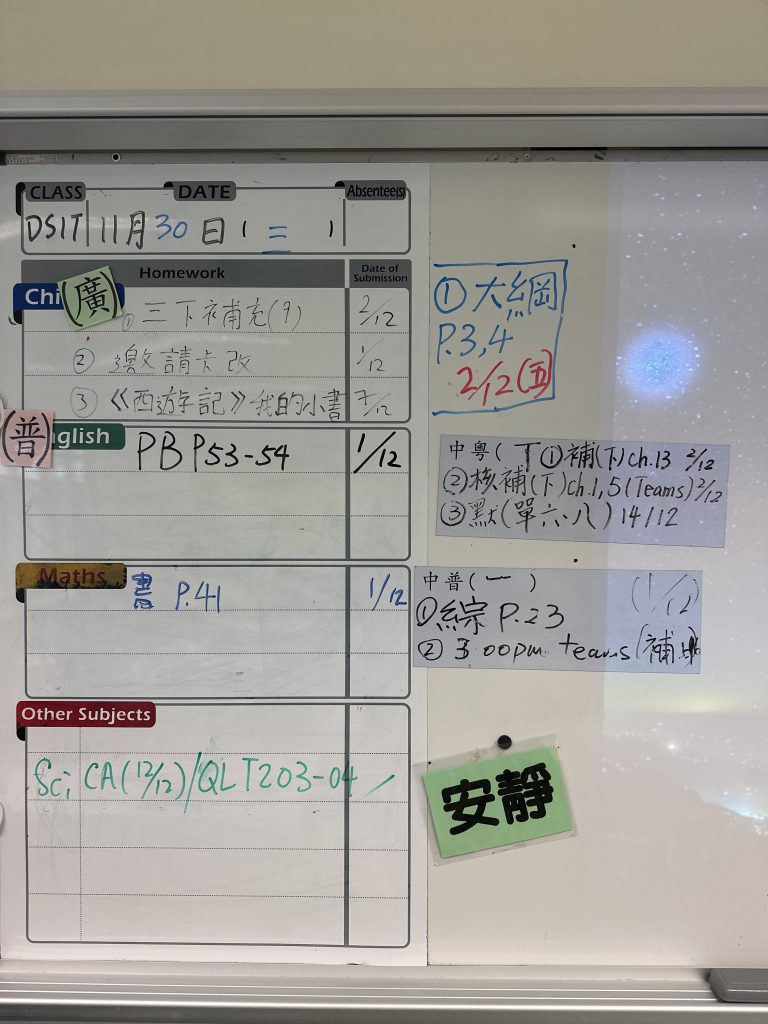 CLASS DATE Absentee(s)
DSIT 11月30日( 三 )
Homework Date of Submission
Chi (廣)
① 三下補充(9) 2/12
② 邀請卡改 1/12
③ 《西遊字記》我的小書 7/12
(普) nglish PB P53-54 1/12
Maths 書 P.41 1/12
Other Subjects
Sci CA(12/12)/QLT203-04
① 大綱
P.3,4
2/12(五)
中粵( 丁 ①補(下)ch.13 2/12
②核補(下)ch.1,5(Teams)2/12
③默(單六、八) 14/12
中普( 一 ) (1/12)
①綜 P.23
② 3:00pm teams(補
安靜